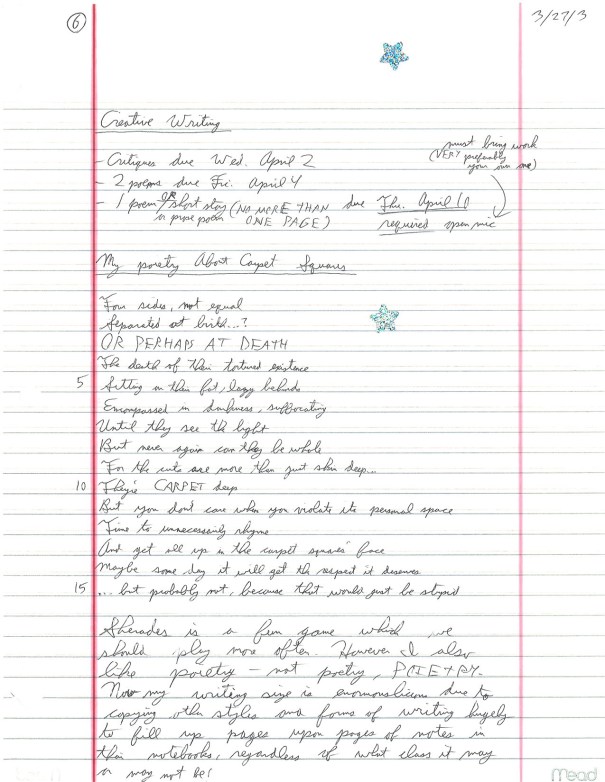 6
3/27/3
Creative Writing
must bring work
(VERY preferably
your own one)
- Critiques due Wed. April 2
- 2 poems due Fri. April 4
- 1 poem OR short story (NO MORE THAN due Thu. April 10
or prose poem ONE PAGE) required open mic
My poietry About Carpet Squares
Four sides, not equal
Separated at birth...?
OR PERHAPS AT DEATH
The death of their tortured existence
5 Sitting on their fat, lazy behinds
Encompassed in darkness, suffocating
Until they see the light
But never again can they be whole
For the cuts are more than just skin deep...
10 They're CARPET deep
But you don't care when you violate its personal space
Time to unnecessarily rhyme
And get all up in the carpet squares' face
Maybe some day it will get the respect it deserves
15 ... but probably not, because that would just be stupid
Sherades is a fun game which we
should play more often. However I also
like poietry - not poetry, POIETRY.
Now my writing size is enormouslicious due to
copying other styles and forms of writing hugely
to fill up pages upon pages of notes in
their notebooks, regardless of what class it may
or may not be!
Mead